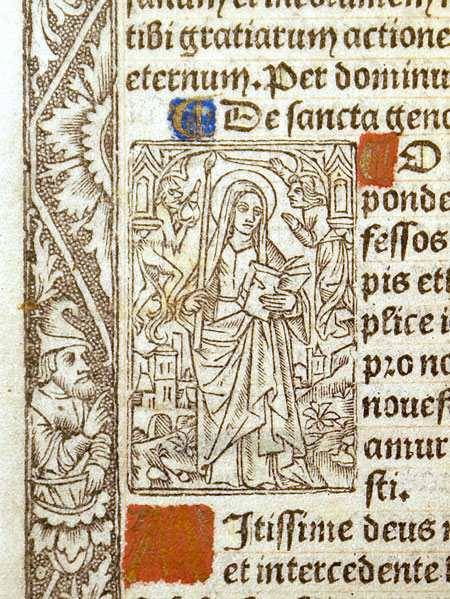 tibi gratiarum actione
eternum. Per dominu
De sancta geno
O
ponde
fessos
pis et
plice i
pro no
noues
amur
sti.
Itissime deus
et intercedente